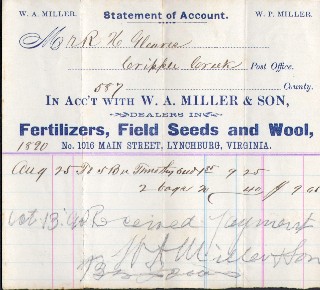 W. A. MILLER. Statement of Account. W. P. MILLER.
Mr R H
Cripple Creek Post Office.
587 County.
IN ACC'T WITH W. A. MILLER & SON,
DEALERS IN
Fertilizers, Field Seeds and Wool,
1890 No. 1016 MAIN STREET, LYNCHBURG, VIRGINIA.
Aug 25 To 5 Bu Timothy Seed 185 9 25
2 bags 20 40 9 65
Oct 13. 90 Received payment
W A Miller & Son